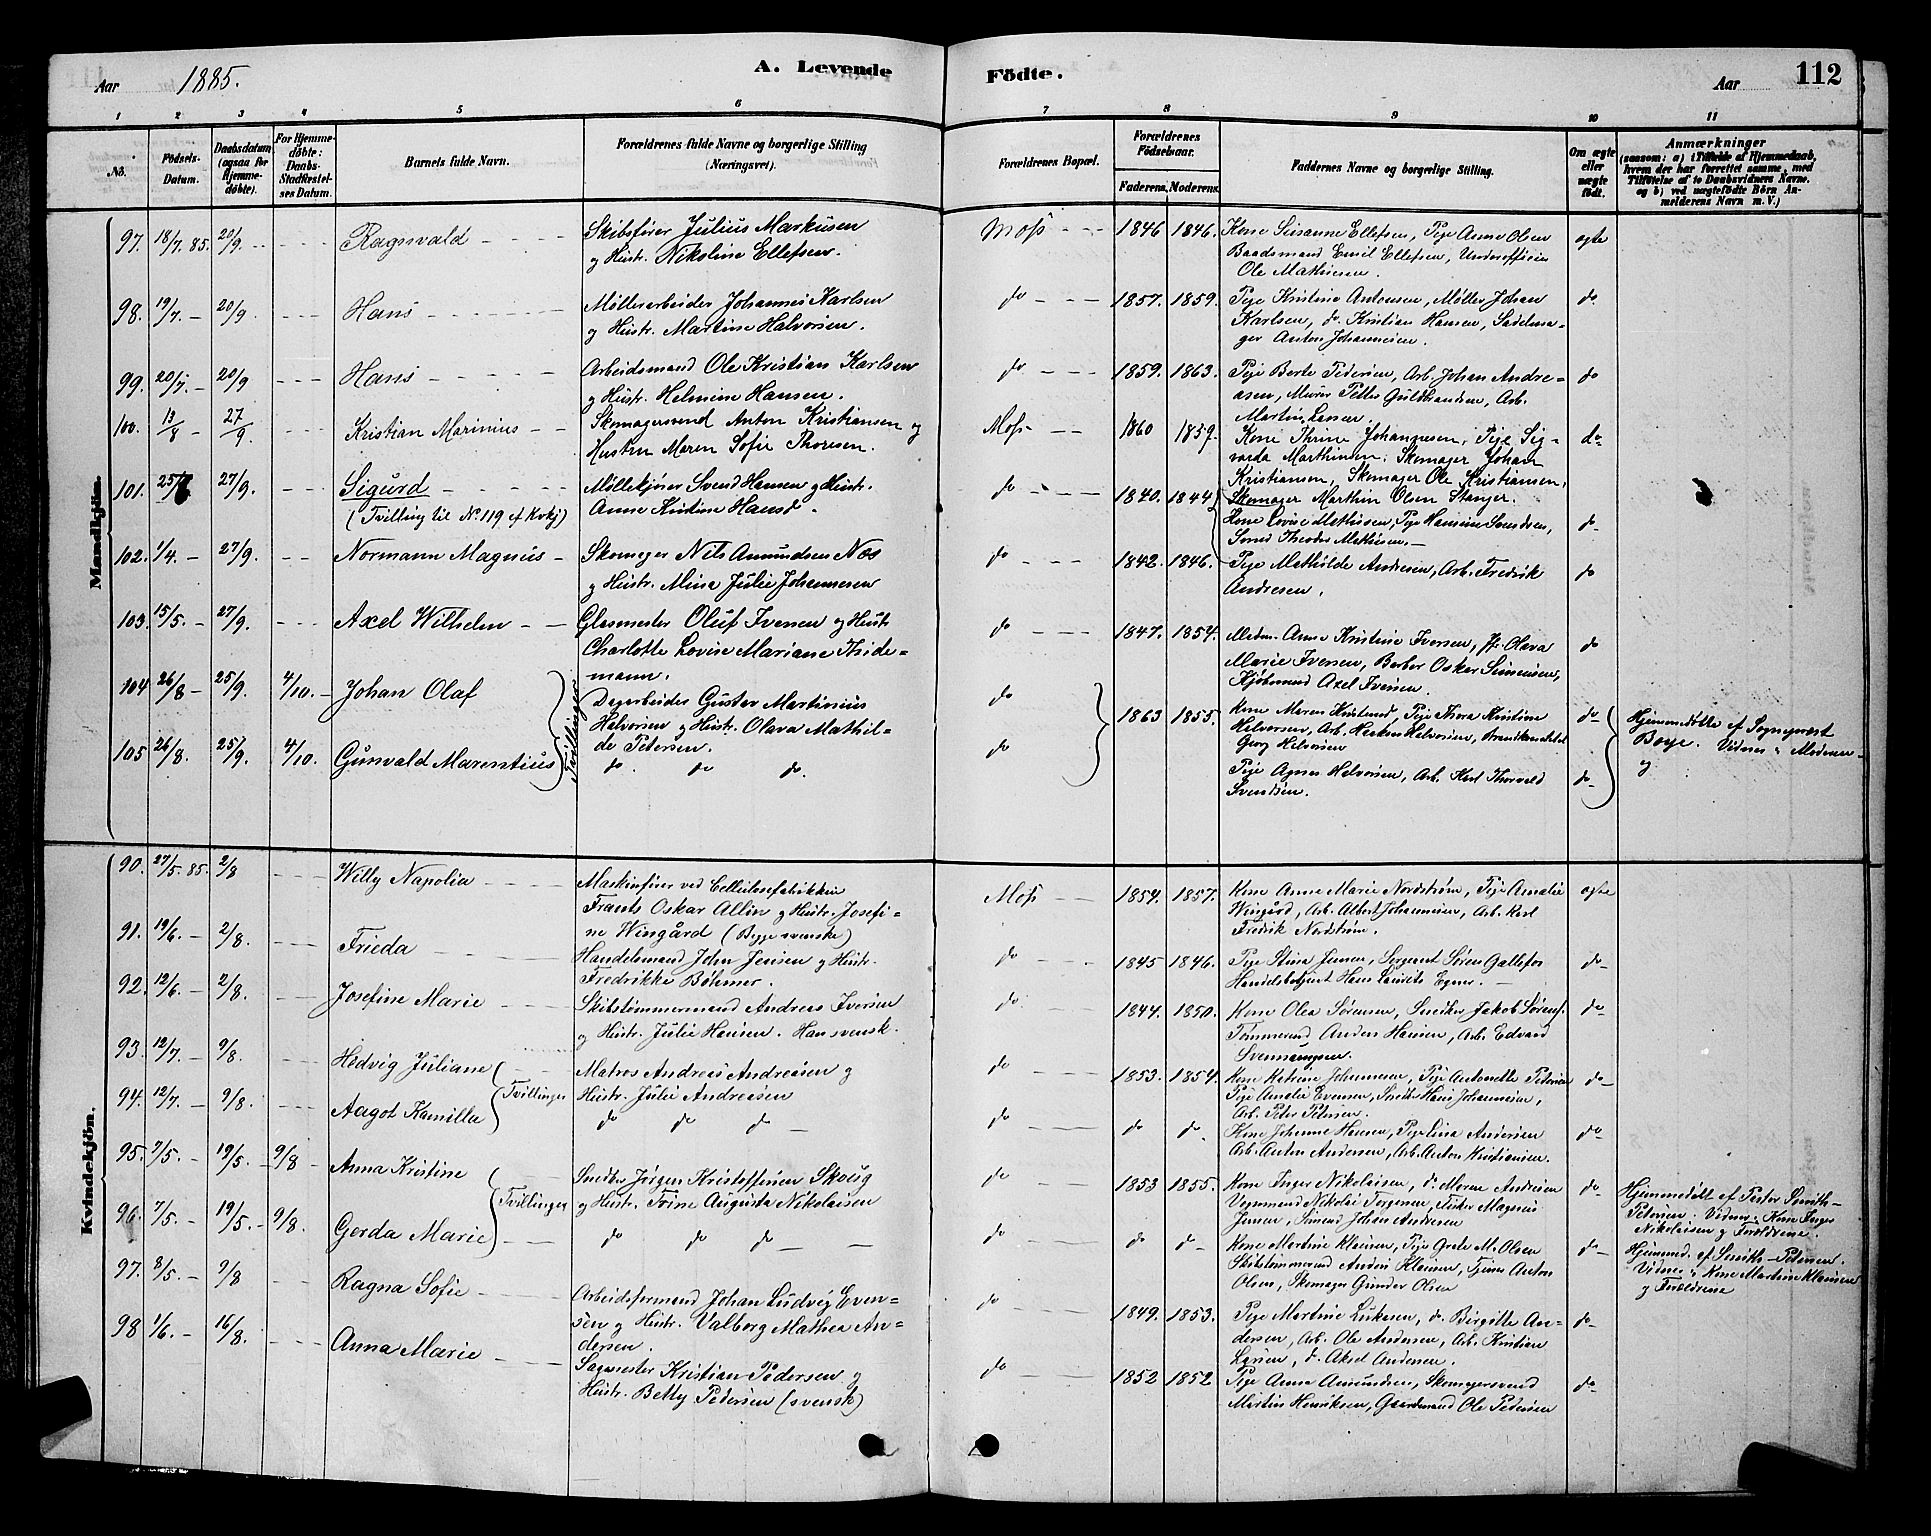 Aar 1885. A. Levende Födte. Aar 112
1 2 3 4 5 6 7 8 9 10 11
No. Födsels-Datum. Daabsdatum (ogsaa for Hjemmedöbte). For Hjemmedöbte: Daabs-Stadfæstelses Datum. Barnets fulde Navn. Forældrenes fulde Navne og borgerlige Stilling (Næringsvei). Forældrenes Bopæl. Forældrenes Födselsaar. Faderens. Moderens. Faddernes Navne og borgerlige Stilling. Om ægte eller uægte födt. Anmærkninger
(saasom: a) i Tilfælde af Hjemmedaab,
hvem der har forrettet samme, med
Tilføielse af to Daabsvidners Navne.
og b) ved uægtefödte Börn Anmelderens Navn m. V.)
Mandkjön.
97. 18/7 85. 20/9 Ragnvald Skibsfører Julius Markusen Moss 1846 1846. Kone Susanne Ellefsen, Pige Anne Olsen ægte
og Hustr. Nikoline Ellefsen. Baadsmand Emil Ellefsen, Underofficier
Ole Mathiesen.
98. 19/7 20/9 Hans Møllerarbeider Johannes Karlsen do 1857. 1859. Pige Kristine Antonsen, Møller Johan do
og Hustr. Martine Halvorsen. Karlsen, do. Kristian Hansen, Sadelma-
ger Anton Johannesen.
99. 20/7 20/9 Hans Arbeidsmand Ole Kristian Karlsen do 1859. 1863. Pige Berte Pedersen, Arb. Johan Andre- do
og Hustr. Helmine Hansen. asen, Murer Petter Guldbrandsen, Arb.
Martin Larsen.
100. 13/8 27/9. Kristian Marinius Skomagersvend Anton Kristiansen og Moss 1860 1859. Kone Thrine Johannesen, Pige Sig- do
Hustru Maren Sofie Thoresen. varda Marthinsen: Skomager Johan
Kristiansen, Skomager Ole Kristiansen,
Skomager Marthin Olsen Stanger.
101. 27/9. Sigurd Møllekjører Svend Hansen og Hustr. do 1840. 1844 Kone Lovise Mathisen, Pige Hansine Svendsen, do
(Tvilling til No. 119 af Kvkj) Anne Kristine Hansd. Svend Theodor Mathisen.
102. 1/4. 27/9. Normann Magnus Skomager Nils Amundsen Næs do 1842. 1846. Pige Mathilde Andresen, Arb. Fredrik do
og Hustr. Mina Julie Johannesen Andresen.
103. 15/5. 27/9. Axel Wilhelm Glasmester Oluf Iversen og Hustr do 1847. 1854. Anne Kristine Iversen, Olava do
Charlotte Lovise Mariane Thide- Marie Iversen, Barber Oskar Simensen,
mann. Kjøbmand Axel Iversen.
104 26/8 25/9. 4/10. Johan Olaf Tvillinger Dagarbeider Gustav Martinius do 1863 1855. Kone Maren Pige Thora Kristine do Hjemmedøbte af Sogneprest
Halvorsen og Hustr. Olava Mathil- Halvorsen, Arb. Halvorsen, Boye. Vidner: Moderen
de Petersen. Georg Halvorsen og
105 26/8. 25/9. 4/10. Gunvald Marentius do. do do. do Pige Agnes Halvorsen, Arb. Karl Thorvald do
Svendsen.
Kvindekjön.
90. 27/5. 85. 2/8 Willy Napolia Maskinfører ved Cellulosefabrikken Moss 1854. 1857. Kone Anne Marie Nordstrøm, Pige Amalie ægte
Frants Oskar Allin og Hustr. Josefi- Wingård, Arb. Albert Johannesen, Arb. Karl
ne Wingård (Begge svenske) Fredrik Nordstrøm.
91. 19/6. 2/8. Frieda Handelsmand John Jensen og Hustr. do 1845 1846. Pige Stina Jensen, Sergeant Søren Gallefos do
Fredrikke Böhmer. Handelsbetjent Hans Laurits Egner.
92. 12/6. 2/8. Josefine Marie Skibstømmermand Andreas Iversen do 1844. 1850. Kone Olea Sørensen, Snedker Jakob Sørens. do
og Hustr. Julie Hansen. Han svensk. Tømmermd. Anders Hansen, Arb. Edvard
Svenningsen.
93. 12/7. 9/8. Hedvig Juliane Matros Andreas Andreasen og do 1853. 1854. Kone Katrine Johannesen, Pige Antonette Petersen do
Tvillinger Hustr. Julie Andreasen Pige Amalie Evensen, Snedker Hans Johannesen,
Arb. Peter Petersen.
94. 12/7. 9/8. Aagot Kamilla do do do do do do. Kone Johanne Hansen, Pige Lina Andersen do
Arb. Anton Andersen, Arb. Anton Kristiansen.
95. 7/5. 19/5. 9/8 Anna Kristine Snedker Jørgen Kristoffersen Skoug do 1853 1855. Kone Inger Nikolaisen, do. Maren Andresen do Hjemmedøbt af Pastor Smith-
Tvillinger og Hustr. Trine Augusta Nikolaisen Vognmand Nikolai Torgersen, Magnus Petersen. Vidner: Kone Inger
Jensen, Johan Andresen Nikolaisen og Forældrene.
96. 7/5. 19/5. 9/8. Gerda Marie do do do do do do Kone Martine Klausen, Pige Grete M. Olsen do Hjemmd. af Smith-Petersen.
Skibstømmermd Anders Klausen, Tjener Anton Vidner: Kone Martine Klausen
Olsen, Skomager Gunder Olsen og Forældrene
97. 8/5. 9/8 Ragna Sofie Arbeidsformand Johan Ludvig Even- do 1849. 1853. Pige Martine Luksen, do. Birgitte An- do
sen og Hustr. Valborg Mathea An- dersen, Arb. Ole Andersen, Arb. Kristian
dersen. Larsen, do. Aksel Andersen.
98 1/6. 16/8. Anna Marie Sagmester Kristian Pedersen og do 1852 1852 Pige Anna Amundsen, Skomagersvend do
Hustr. Betty Pedersen (svensk) Martin Henriksen, Gaardmand Ole Pedersen